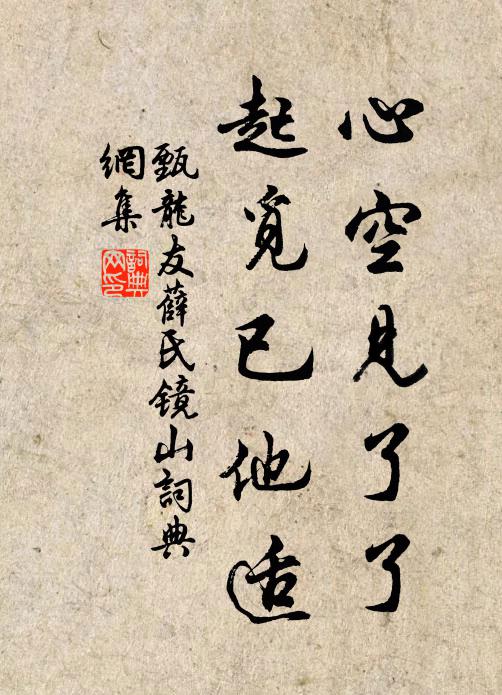 心空見了了
起覓已他适
甄龍友薛氏镜山詞典
網集
詞典网印